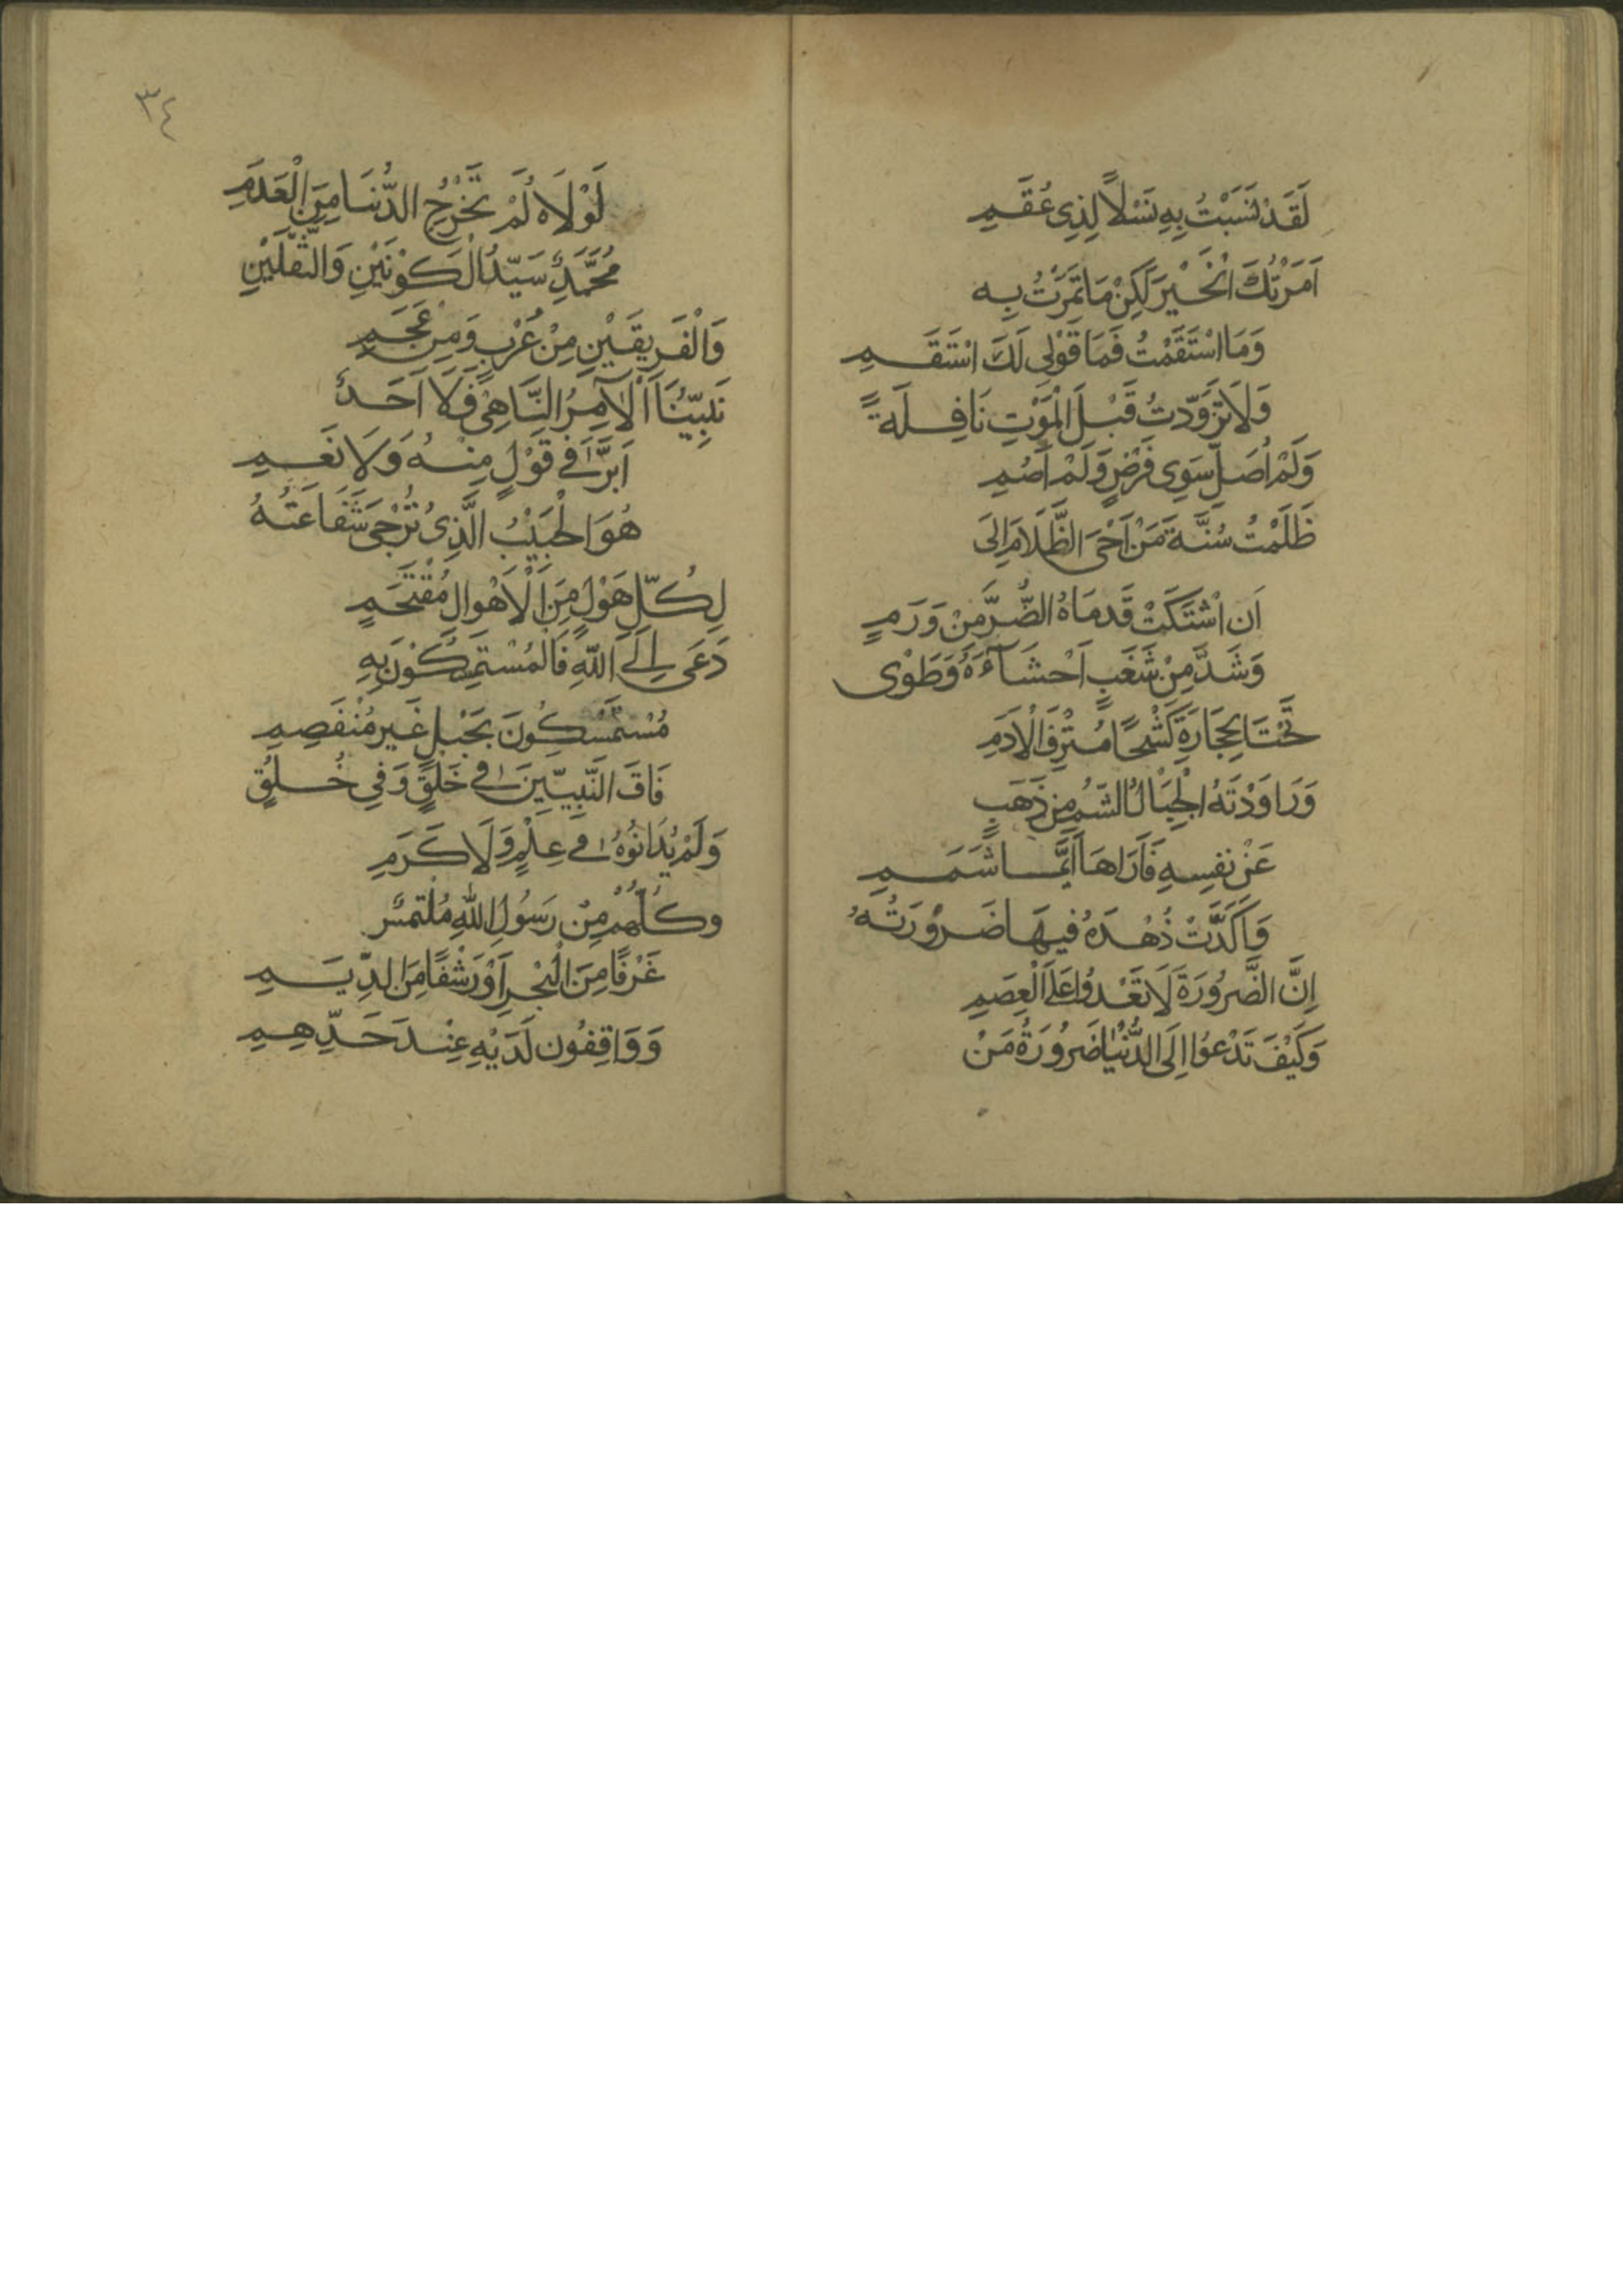 لَقَدْ نَسَبْتُ بِهِ نَسْلاً لِذِى عُقَمِ
اَمَرْتُكَ الْخَيْرَ لَكِنْ مَا تَمَرْتُ بِهِ
وَمَا اسْتَقَمْتُ فَمَا قَوْلِى لَكَ اسْتَقَمِ
وَلَا تَزَوَّدْتُ قَبْلَ الْمَوْتِ نَافِلَةً
وَلَمْ اُصَلِّ سِوَى فَرْضٍ وَلَمْ اَصُمِ
ظَلَمْتُ سُنَّةَ مَنْ اَحْىَ الظَّلَامَ اِلَى
اَنِ اشْتَكَتْ قَدَمَاهُ الضُّرَّ مِنْ وَرَمٍ
وَشَدَّ مِنْ شَغَبٍ اَحْشَآءَهُ وَطَوٰى
تَحْتَ الحِجَارَةِ كَشْحًا مُتْرِفَ الْاَدَمِ
وَرَاوَدَتْهُ الْجِبَالُ الشُّمُّ مِنْ ذَهَبٍ
عَنْ نَفْسِهِ فَاَرَاهَا اَيَّمَا شَمَمِ
وَاَكَّدَتْ ذُهْدَهُ فِيهَا ضَرُورَتُهُ
اِنَّ الضَّرُورَةَ لَا تَعْدُوا عَلَى الْعِصَمِ
وَكَيْفَ تَدْعُوا اِلَى الدُّنْيَا ضَرُورَةُ مَنْ
٣٤
لَوْلَاهُ لَمْ تَخْرُجِ الدُّنْيَا مِنَ الْعَدَمِ
مُحَمَّدٌ سَيِّدُ الْكَوْنَيْنِ وَالثَّقَلَيْنِ
وَالْفَرِيقَيْنِ مِنْ عُرْبٍ وَمِنْ عَجَمِ
نَبِيُّنَا اَلْآمِرُ النَّاهِى فَلَا اَحَدٌ
اَبَرَّ فِى قَوْلٍ مِنْهُ وَلَا نَعَمِ
هُوَ الْحَبِيْبُ الَّذِى تُرْجَى شَفَاعَتُهُ
لِكُلِّ هَوْلٍ مِنَ الْاَهْوَالِ مُقْتَحَمٍ
دَعَى اِلَى اللّٰهِ فَالْمُسْتَمْسِكُوْنَ بِهِ
مُسْتَمْسِكُونَ بِحَبْلٍ غَيْرِ مُنْفَصِمِ
فَاقَ النَّبِيّيْنَ فِى خَلْقٍ وَفِى خُلُقٍ
وَلَمْ يُدَانُوْهُ فِى عِلْمٍ وَلَا كَرَمِ
وَكُلُّهُمْ مِنْ رَسُولِ اللّٰهِ مُلْتَمِسٌ
غَرْفًا مِنَ الْبَحْرِ اَوْ رَشْفًا مِنَ الدِّيَمِ
وَوَاقِفُونَ لَدَيْهِ عِنْدَ حَدِّهِمِ